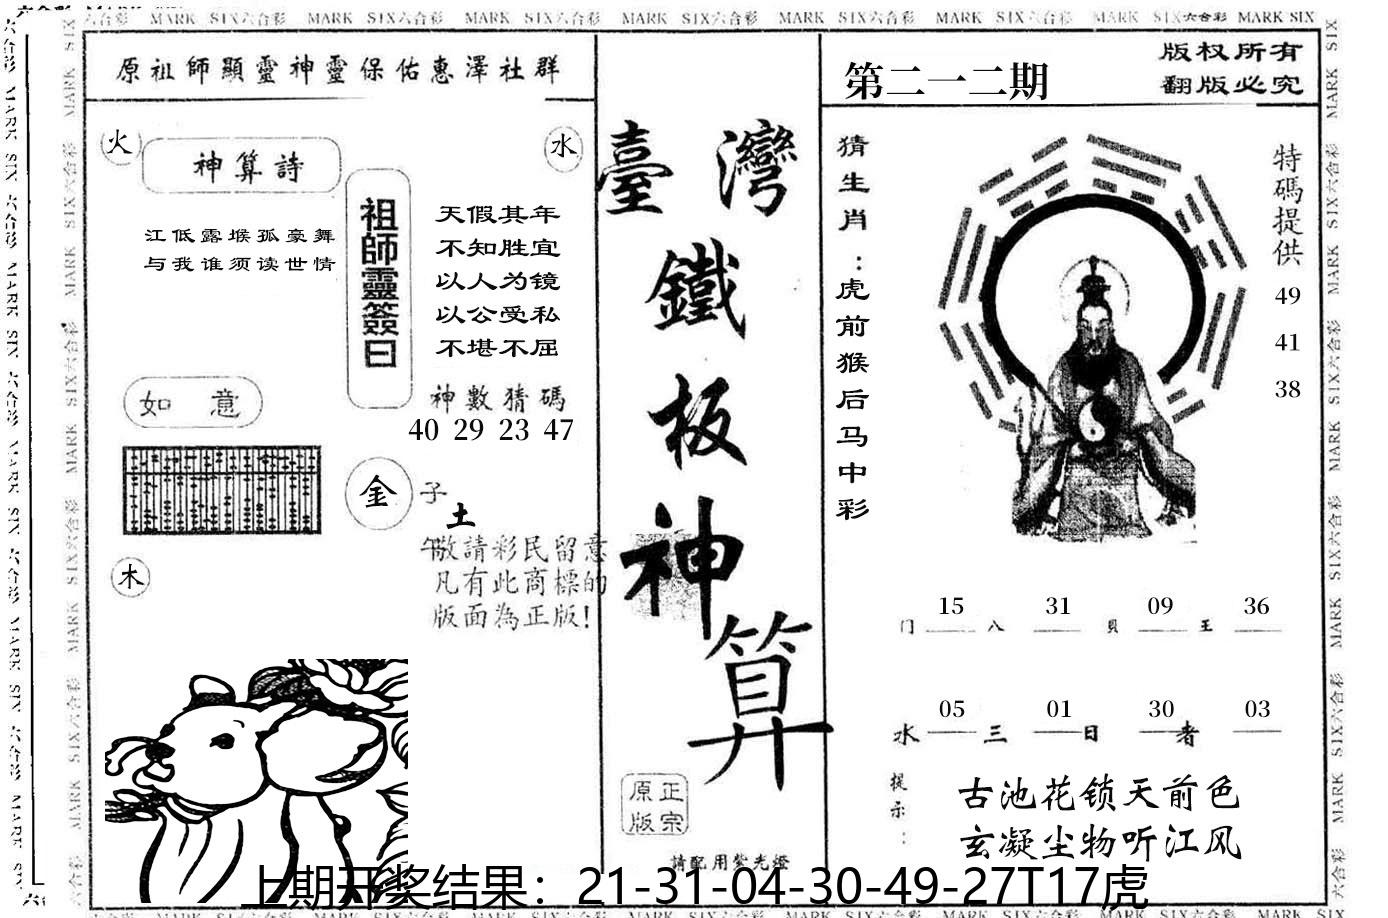 MARK SIX六合彩 MARK SIX六合彩 MARK SIX六合彩 MARK SIX六合彩 MARK SIX六合彩 MARK SIX六合彩 MARK SIX六合彩 MARK SIX六合彩 MARK SIX
原祖師顯靈神靈保佑惠澤社群
火
水
神算詩
江低露堠孤豪舞
与我谁须读世情
祖師靈簽曰
天假其年
不知胜宜
以人为镜
以公受私
不堪不屈
神數猜碼
40 29 23 47
如意
金
子
土
午
敬請彩民留意
凡有此商標的
版面為正版!
木
臺灣
鐵
板
神
算
原正
版宗
請配用紫光燈
第二一二期
版权所有
翻版必究
猜生肖:虎前猴后马中彩
特碼提供
49
41
38
15 31 09 36
门 八 贝 王
05 01 30 03
水 三 日 者
提示:
古池花锁天前色
玄凝尘物听江风
上期开奖结果：21-31-04-30-49-27T17虎